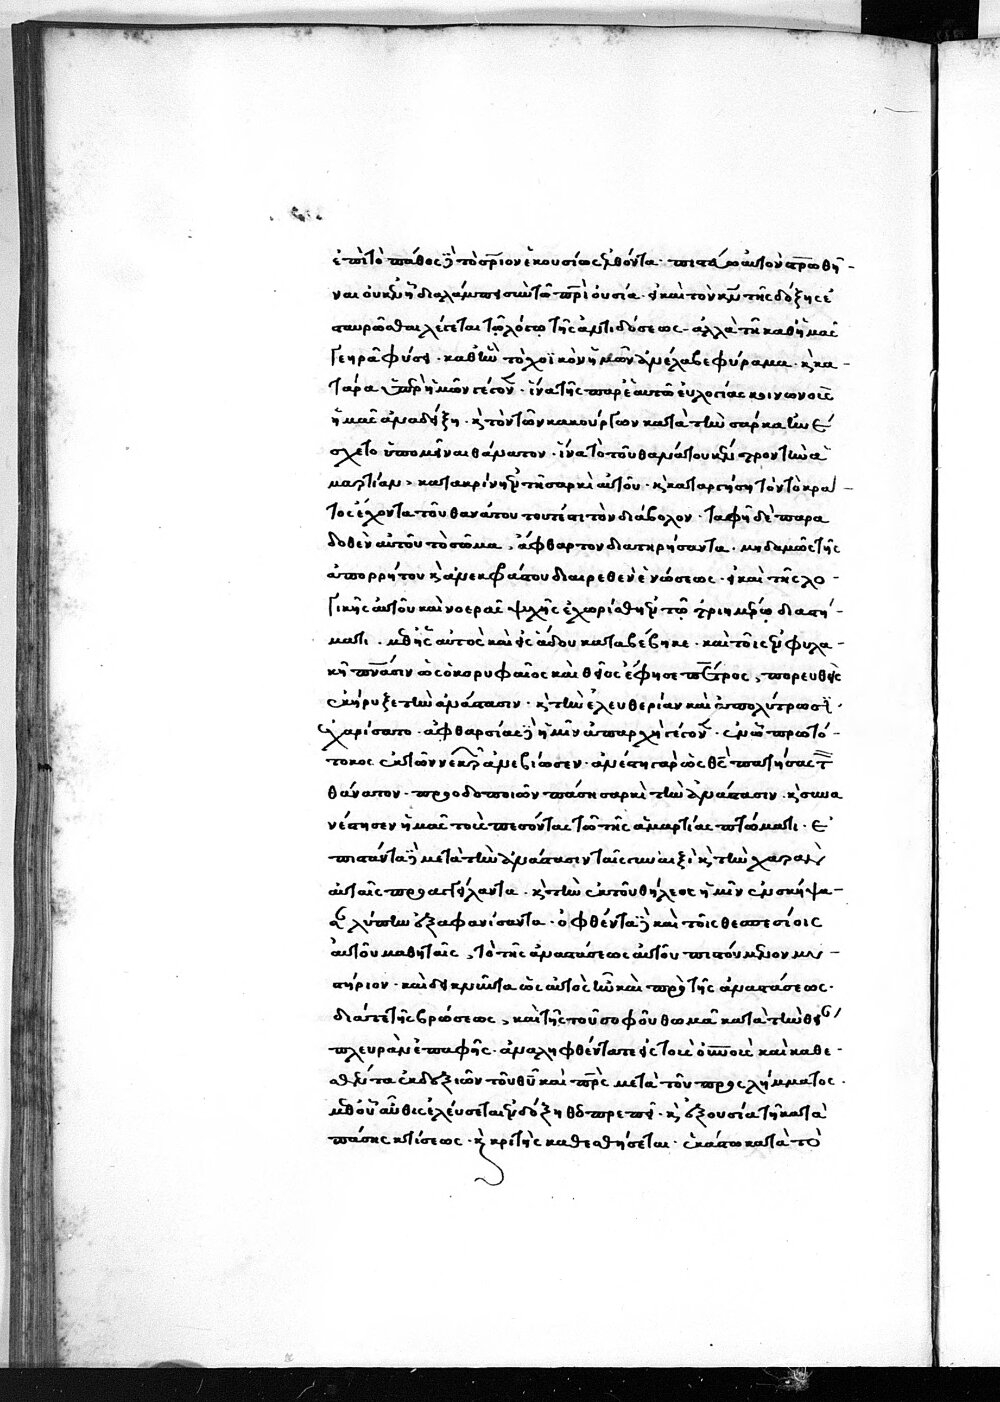 ἐπὶ τὸ πάθος δὲ τὸ σριον ἑκουσίως ἐλθόντα· σταυρωθῆ-
ναι οὐκ ἐν ᾗ διαλάμπει σὺν τῷ πρὶ οὐσία· εἰ καὶ τὸν κν τῆς δόξης ἐ
σταυρῶσθαι λέγεται τῷ λόγῳ τῆς ἀντιδόσεως· ἀλλὰ τῇ καθ' ἡμᾶς
γεηρᾶ φύσει· καθ' ἣν τὸ χοϊκὸν ἡμῶν ἀνέλαβε φύραμα· κ κα-
τάρα ὑπὲρ ἡμῶν γέγονεν· ἵνα τῆς παρ' ἑαυτῶ εὐλογίας κοινωνοὺς
ἡμᾶς ἀναδείξη· κ τὸν τῶν κακούργων κατὰ τὴν σάρκα ἠνέ
σχετο ὑπομεῖναι θάνατον· ἵνα τὸ τοῦ θανάτου κέντρον τὴν ἁ
μαρτίαν, κατακρίνη ἐν τῆ σαρκὶ αὐτοῦ· κ καταργήση τὸν τὸ κρά-
τος ἔχοντα τοῦ θανάτου τουτέστι τὸν διάβολον· ταφῆ δὲ παρα
δοθὲν αὐτοῦ τὸ σῶμα, ἄφθαρτον διατηρήσαντα· μηδαμῶς τῆς
ἀπορρήτου κ ἀνεκφράστου διαιρεθὲν ἑνώσεως· εἰ καὶ τῆς λο-
γικῆς αὐτοῦ καὶ νοερᾶς ψυχῆς ἐχωρίσθη ἐν τῷ τριημέρω διαστή-
ματι· μεθ' ἧς αὐτὸς καὶ εἰς ἅδου καταβέβηκε· καὶ τοῖς ἐν φυλα-
κῆ πνασιν ὡς ὁ κορυφαῖος καὶ θεῖος ἔφησε πέτρος, πορευθεὶς
ἐκήρυξε τὴν ἀνάστασιν· κ τὴν ἐλευθερίαν καὶ ἀπολύτρωσιν
ἐχαρίσατο· ἀφθαρσίας δὲ ἡμῖν ἀπαρχὴ γέγονεν· ἐν ὧ πρωτό-
τοκος ἐκ τῶν νεκρῶν ἀνεβίωσεν· ἀνέστη γὰρ ὡς θς πατήσας τὸν
θάνατον· προοδοποιῶν πάση σαρκὶ τὴν ἀνάστασιν· κ συνα
νέστησεν ἡμᾶς τοὺς πεσόντας τῶ τῆς ἁμαρτίας πτώματι· ἐ
πιστάντα δὲ μετὰ τὴν ἀνάστασιν ταῖς γυναιξὶ κ τὴν χαρὰν
αὐταῖς προσαγγείλαντα· κ τὴν ἐκ τοῦ θήλεος ἡμῖν ἐνσκήψα-
σαν λύπην ἐξαφανίσαντα· ὀφθέντα δὲ καὶ τοῖς θεσπεσίοις
αὐτοῦ μαθηταῖς, τὸ τῆς ἀναστάσεως αὐτοῦ πιστούμενον μυ-
στήριον· καὶ δεικνῦντα ὡς αὐτὸς ἦν καὶ πρὸ τῆς ἀναστάσεως·
διά τε τῆς βρώσεως, καὶ τῆς τοῦ σοφοῦ θωμᾶ κατὰ τὴν θείαν
πλευρὰν ἐπαφῆς· ἀναληφθέντα τε εἰς τοὺς οὐνους καὶ καθε-
σθέντα ἐκ δεξιῶν τοῦ θῦ καὶ πρς μετὰ τοῦ προσλήμματος·
μεθ' οὗ αὖθις ἐλεύσεται ἐν δόξη θεοπρεπεῖ· κ ἐξουσία τῆ κατὰ
πάσης κτίσεως· κ κριτὴς καθεσθήσεται· ἑκάστω κατὰ τὸ